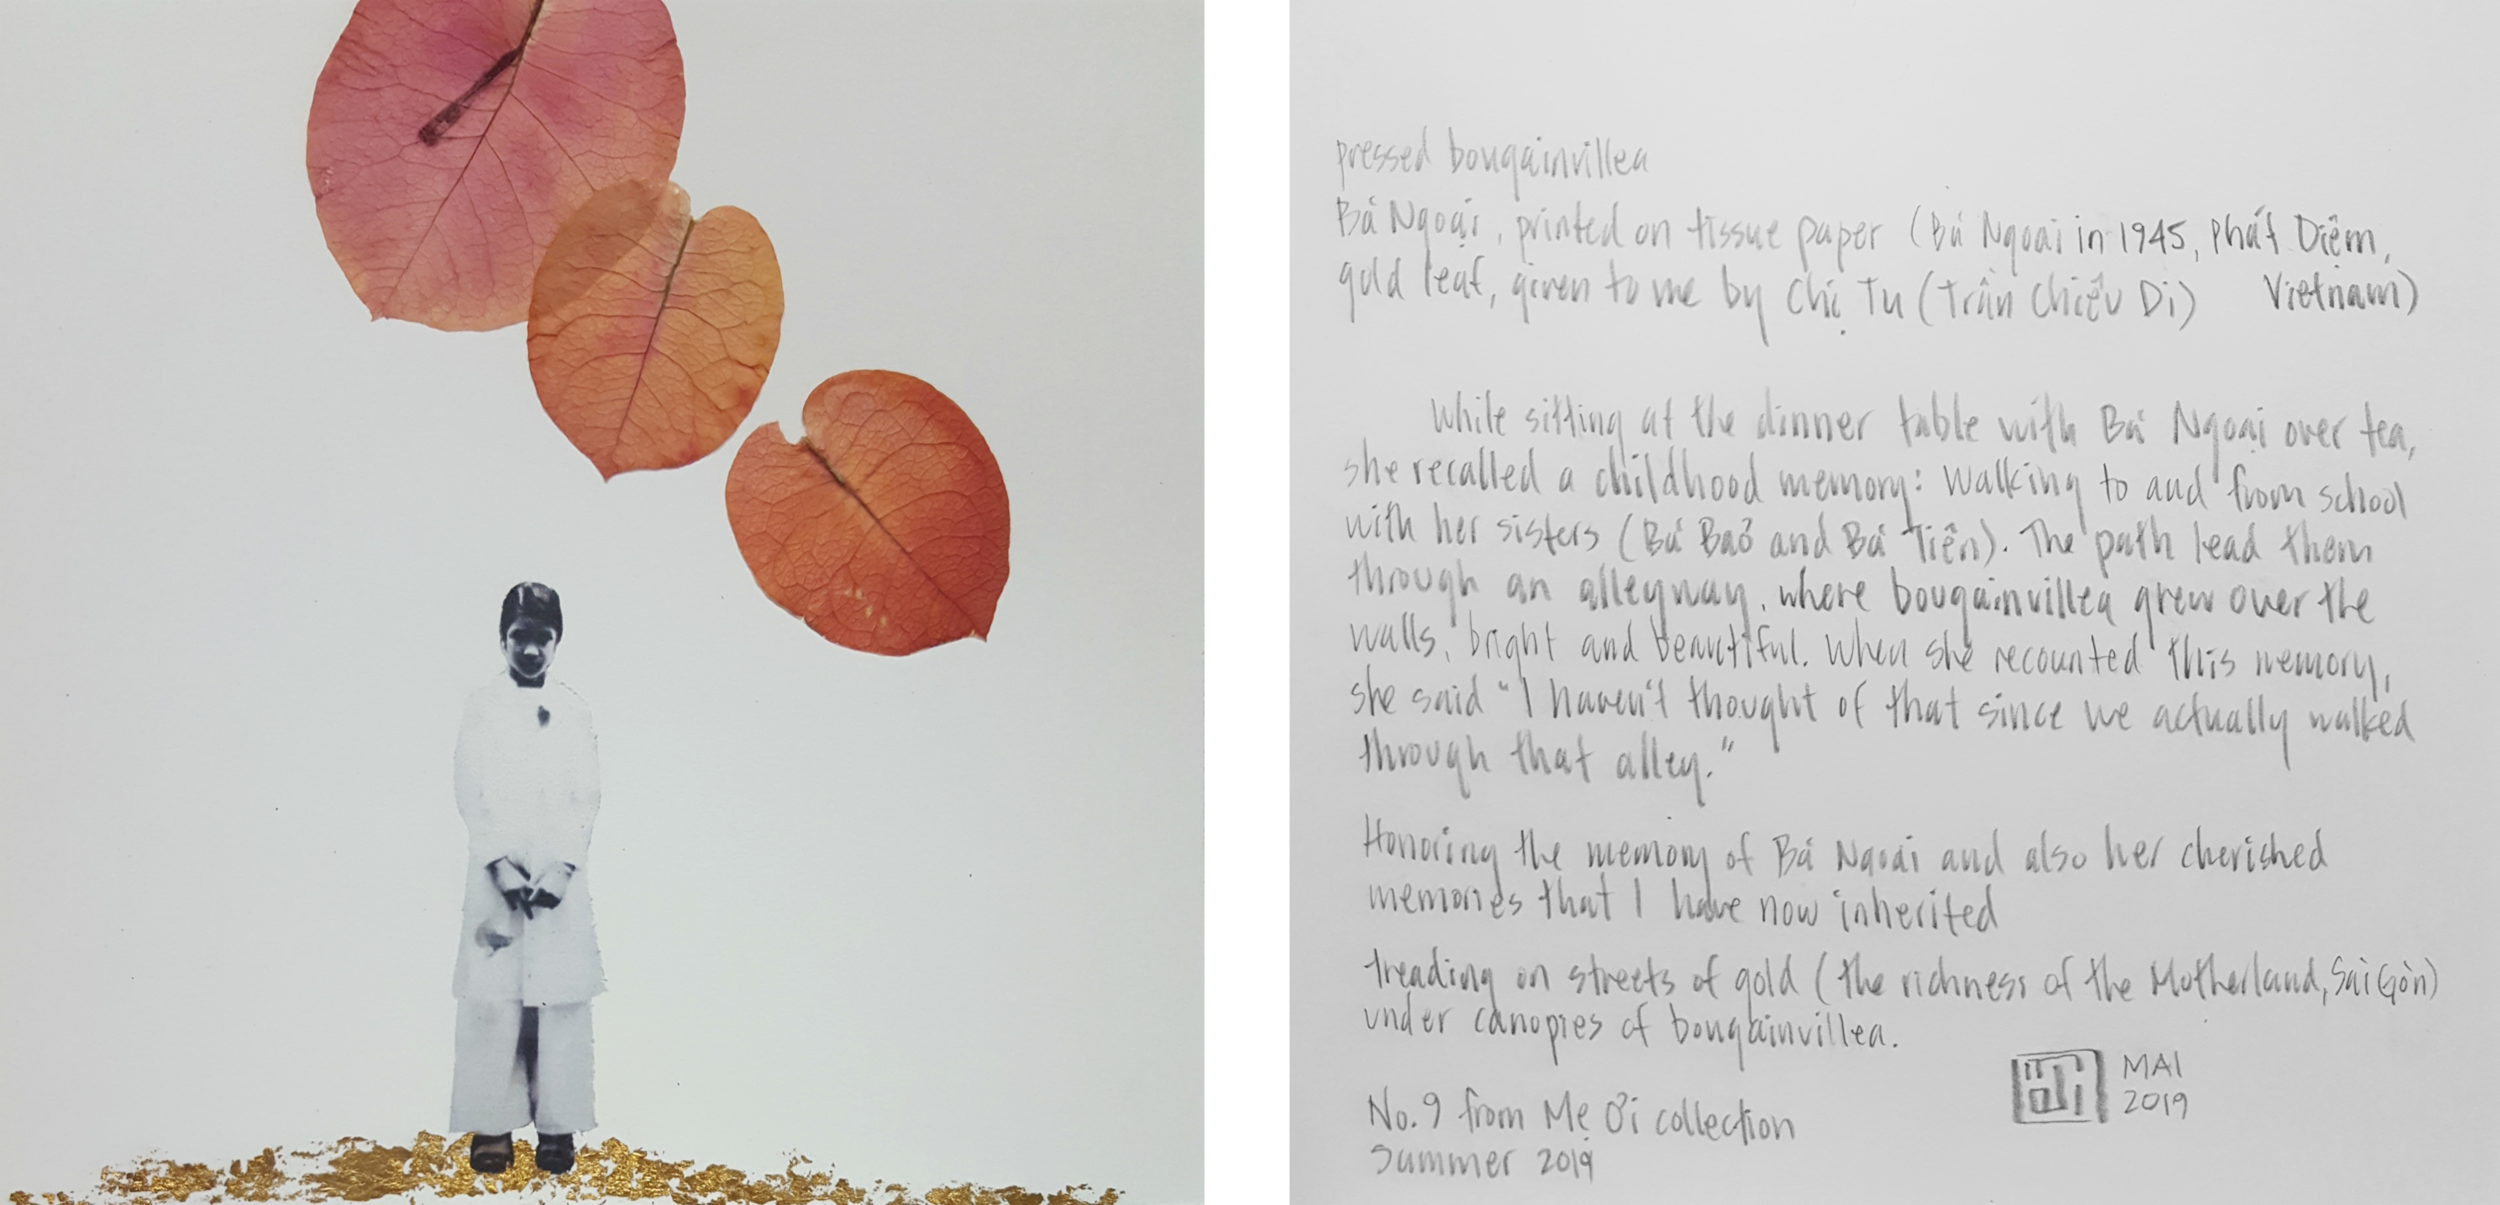 pressed bougainvillea
Bà Ngoại, printed on tissue paper (Bà Ngoại in 1945, Phát Diệm,
gold leaf, given to me by Chị Tu (Trần Chiêu Di) Vietnam)
While sitting at the dinner table with Bà Ngoại over tea,
she recalled a childhood memory: Walking to and from school
with her sisters (Bà Baõ and Bà Tiên). The path lead them
through an alleyway, where bougainvillea grew over the
walls, bright and beautiful. When she recounted this memory,
she said "I haven't thought of that since we actually walked
through that alley."
Honoring the memory of Bà Ngoại and also her cherished
memories that I have now inherited
treading on streets of gold (the richness of the Motherland, Sài Gòn)
under canopies of bougainvillea.
No. 9 from Mẹ Ơi collection
Summer 2019
MAI
2019